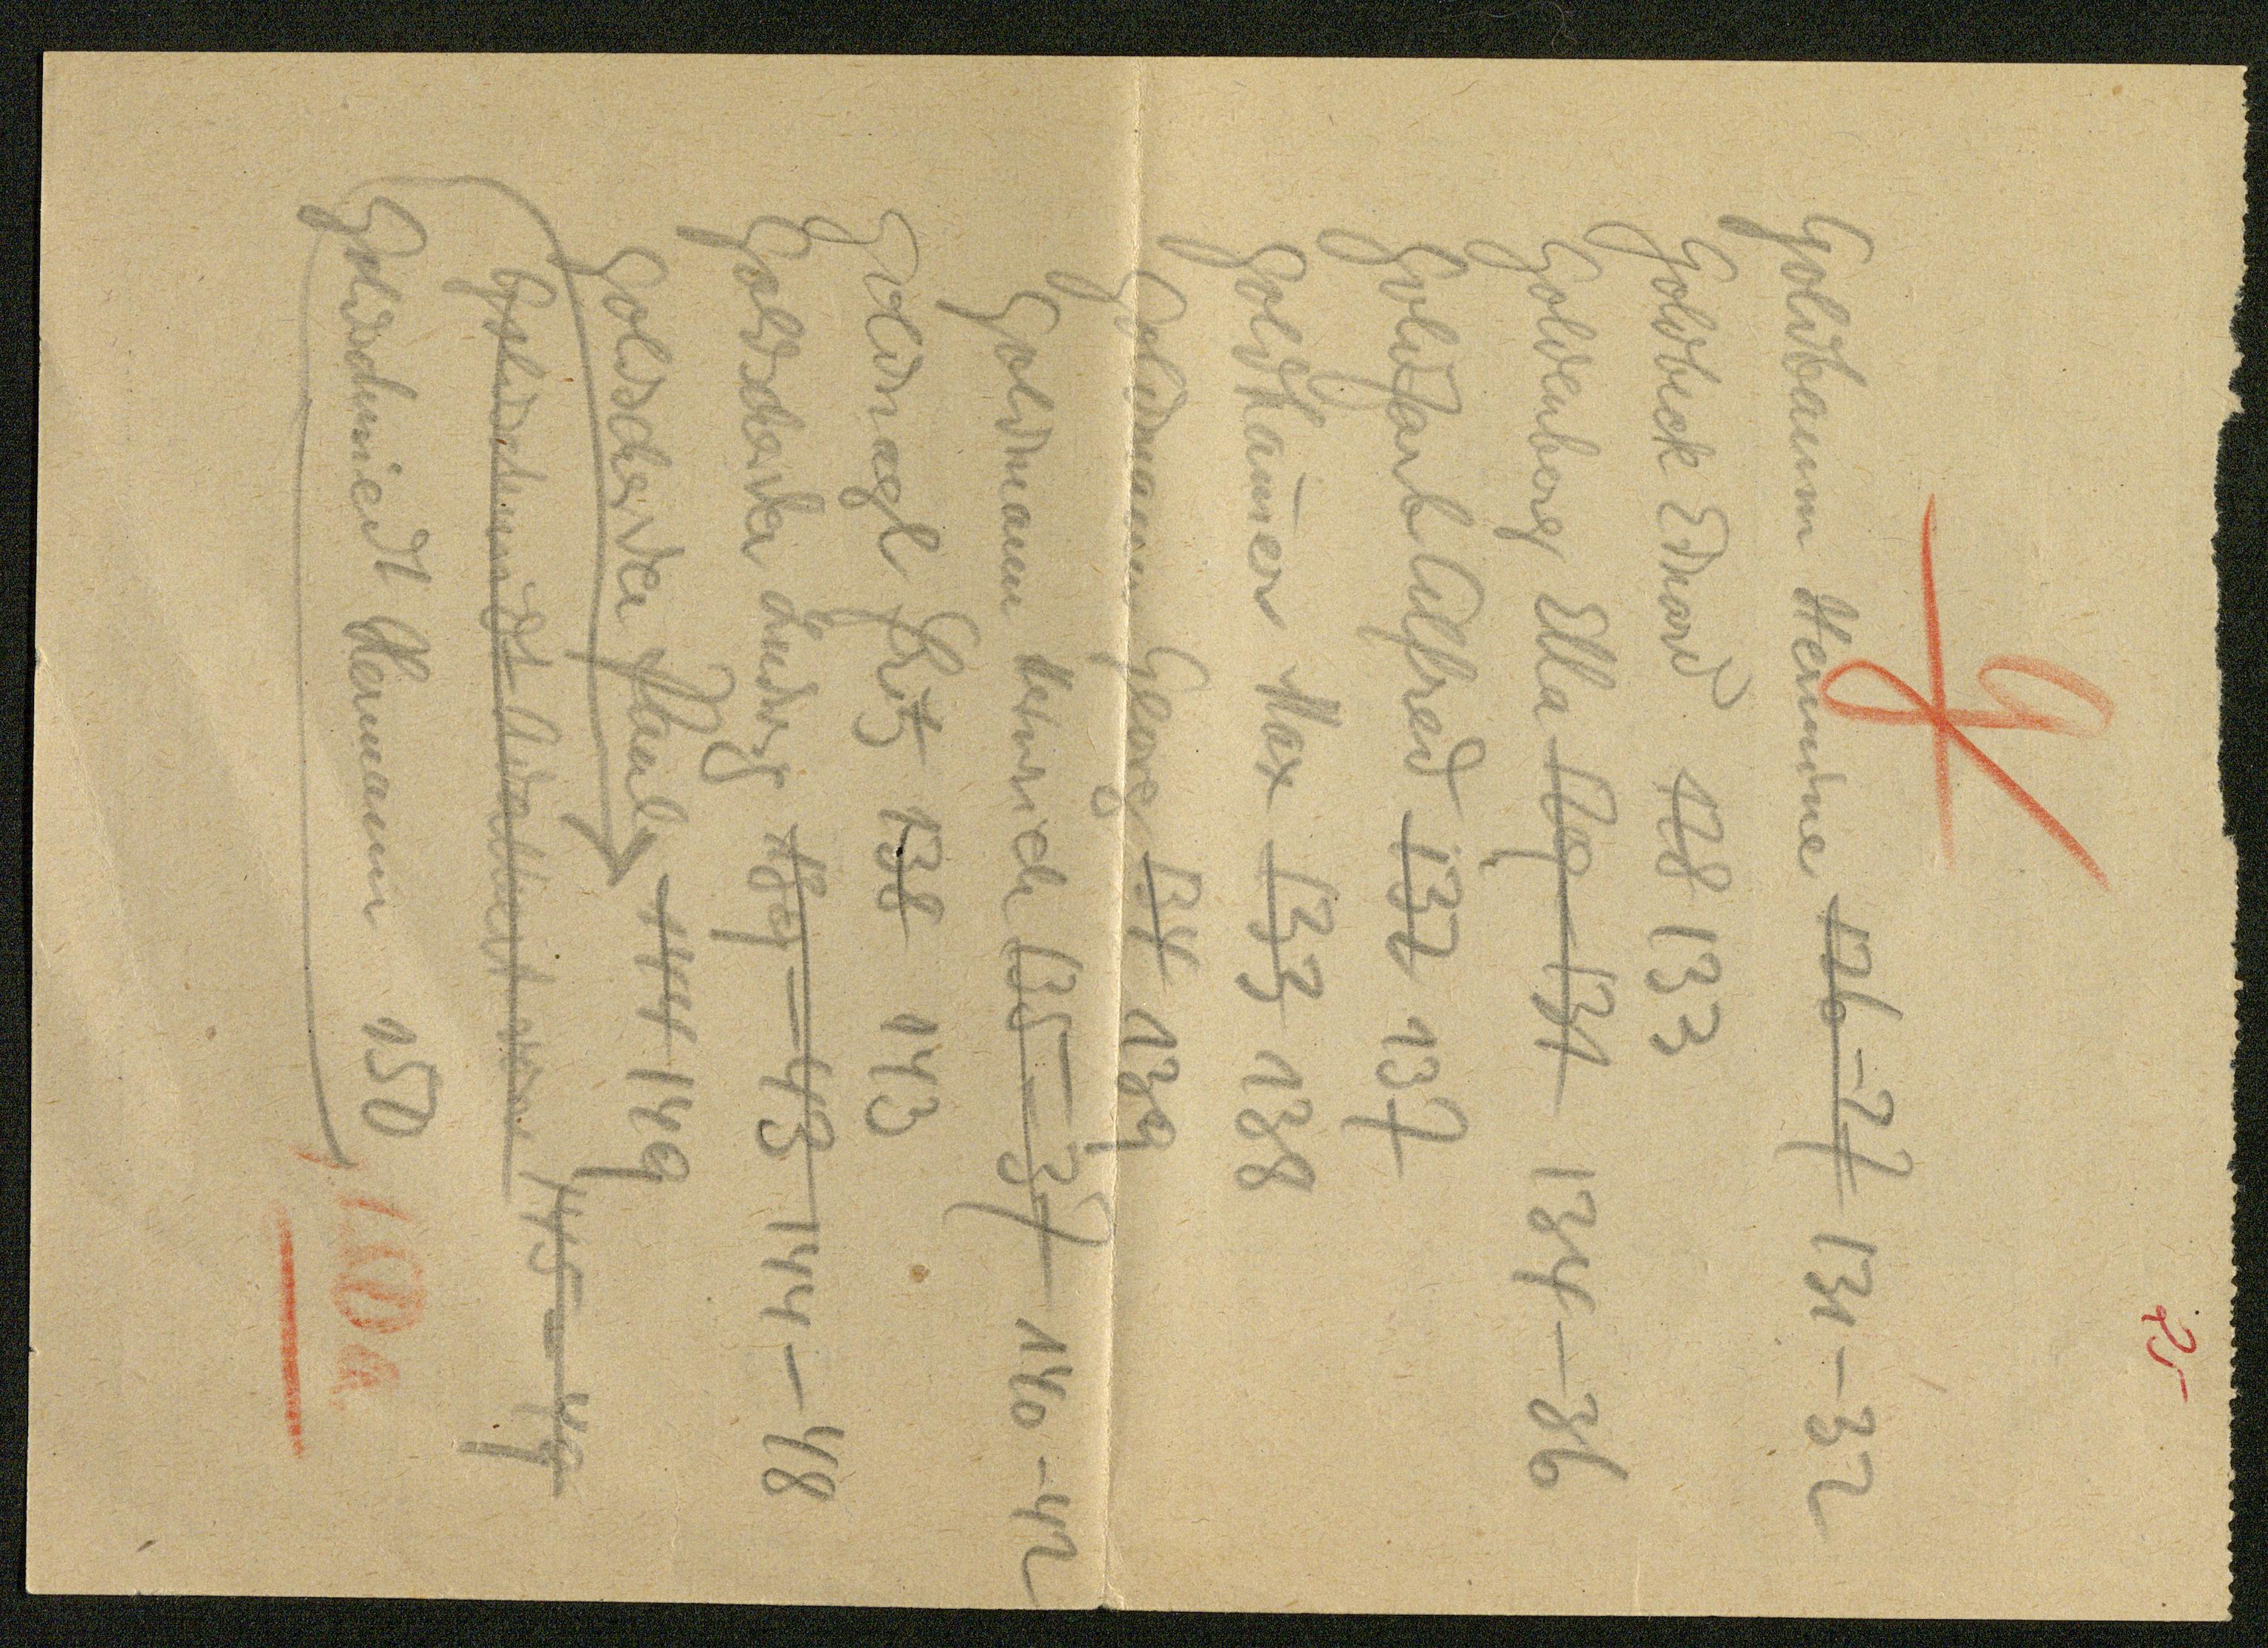 25
G
Goldbaum Hermine 126-27 131-32
Goldbeck Eduard 128 133
Goldenberg Ella 129-131 134-36
Goldfarb Alfred 132 137
Goldhammer Max 133 138
Goldmann Georg 134 139
Goldmann Heinrich 135-37 140-42
Goldnagl Fritz 138 143
Goldscheider 139-43 144-48
Goldscheider Paul 144 149
Goldschmidt 145-49
Goldschmiedt Hermann 150